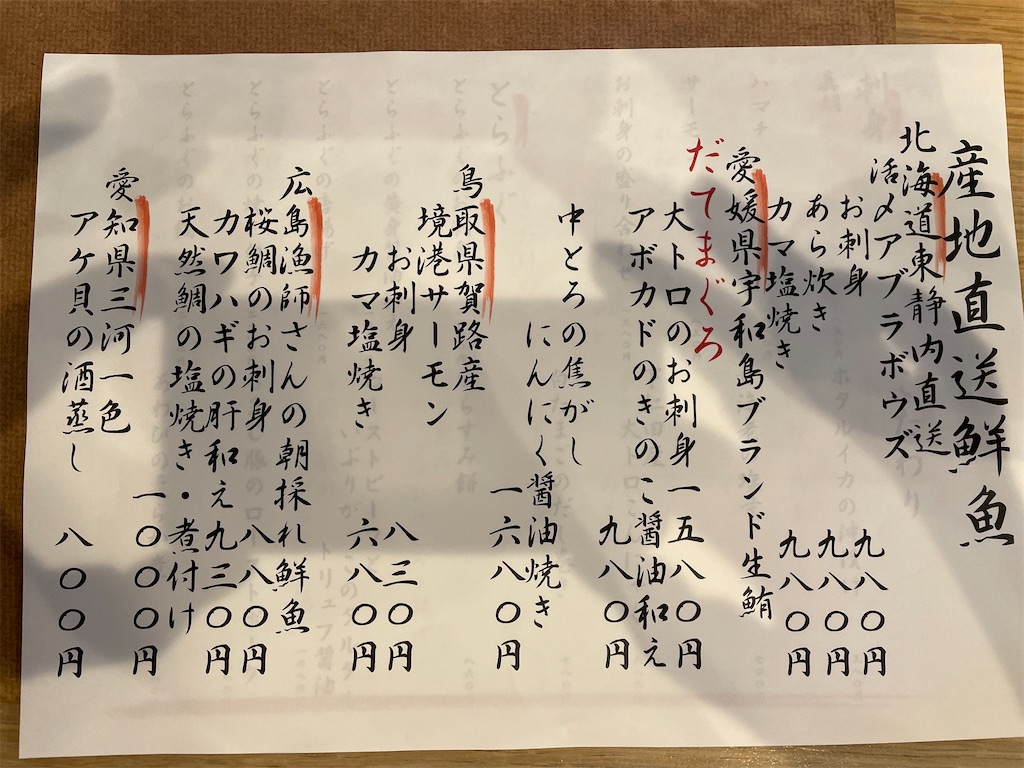 産地直送鮮魚
北海道東静内直送
活〆アブラボウズ
お刺身 九八〇円
あら炊き 九八〇円
カマ塩焼き 九八〇円
愛媛県宇和島ブランド生鮪
だてまぐろ
大トロのお刺身 一五八〇円
アボカドのきのこ醤油和え
九八〇円
中とろの焦がし
にんにく醤油焼き
一六八〇円
鳥取県賀路産
境港サーモン
お刺身 八三〇円
カマ塩焼き 六八〇円
広島漁師さんの朝採れ鮮魚
桜鯛のお刺身 八八〇円
カワハギの肝和え 九三〇円
天然鯛の塩焼き・煮付け
一〇〇〇円
愛知県三河一色
アケ貝の酒蒸し 八〇〇円